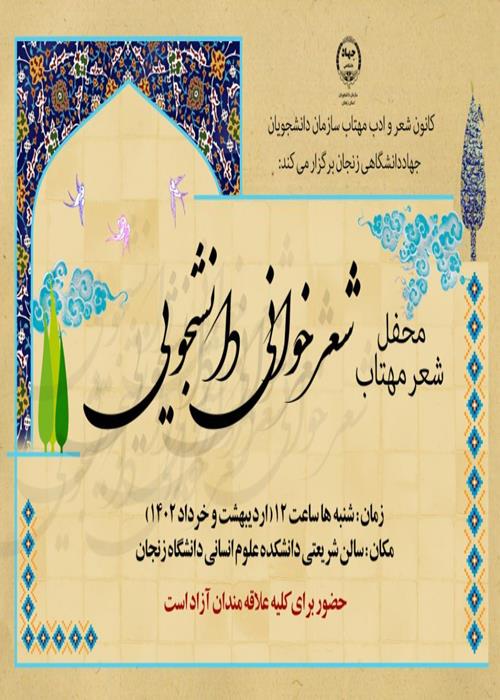 جهاد
دانشگاهی
سازمان دانشجویان
استان زنجان
کانون شعر و ادب مهتاب سازمان دانشجویان
جهاددانشگاهی زنجان برگزار می کند:
محفل
شعر مهتاب
شعرخوانی دانشجویی
زمان: شنبه ها ساعت ۱۲ (اردیبهشت و خرداد ۱۴۰۲)
مکان: سالن شریعتی دانشکده علوم انسانی دانشگاه زنجان
حضور برای کلیه علاقه مندان آزاد است